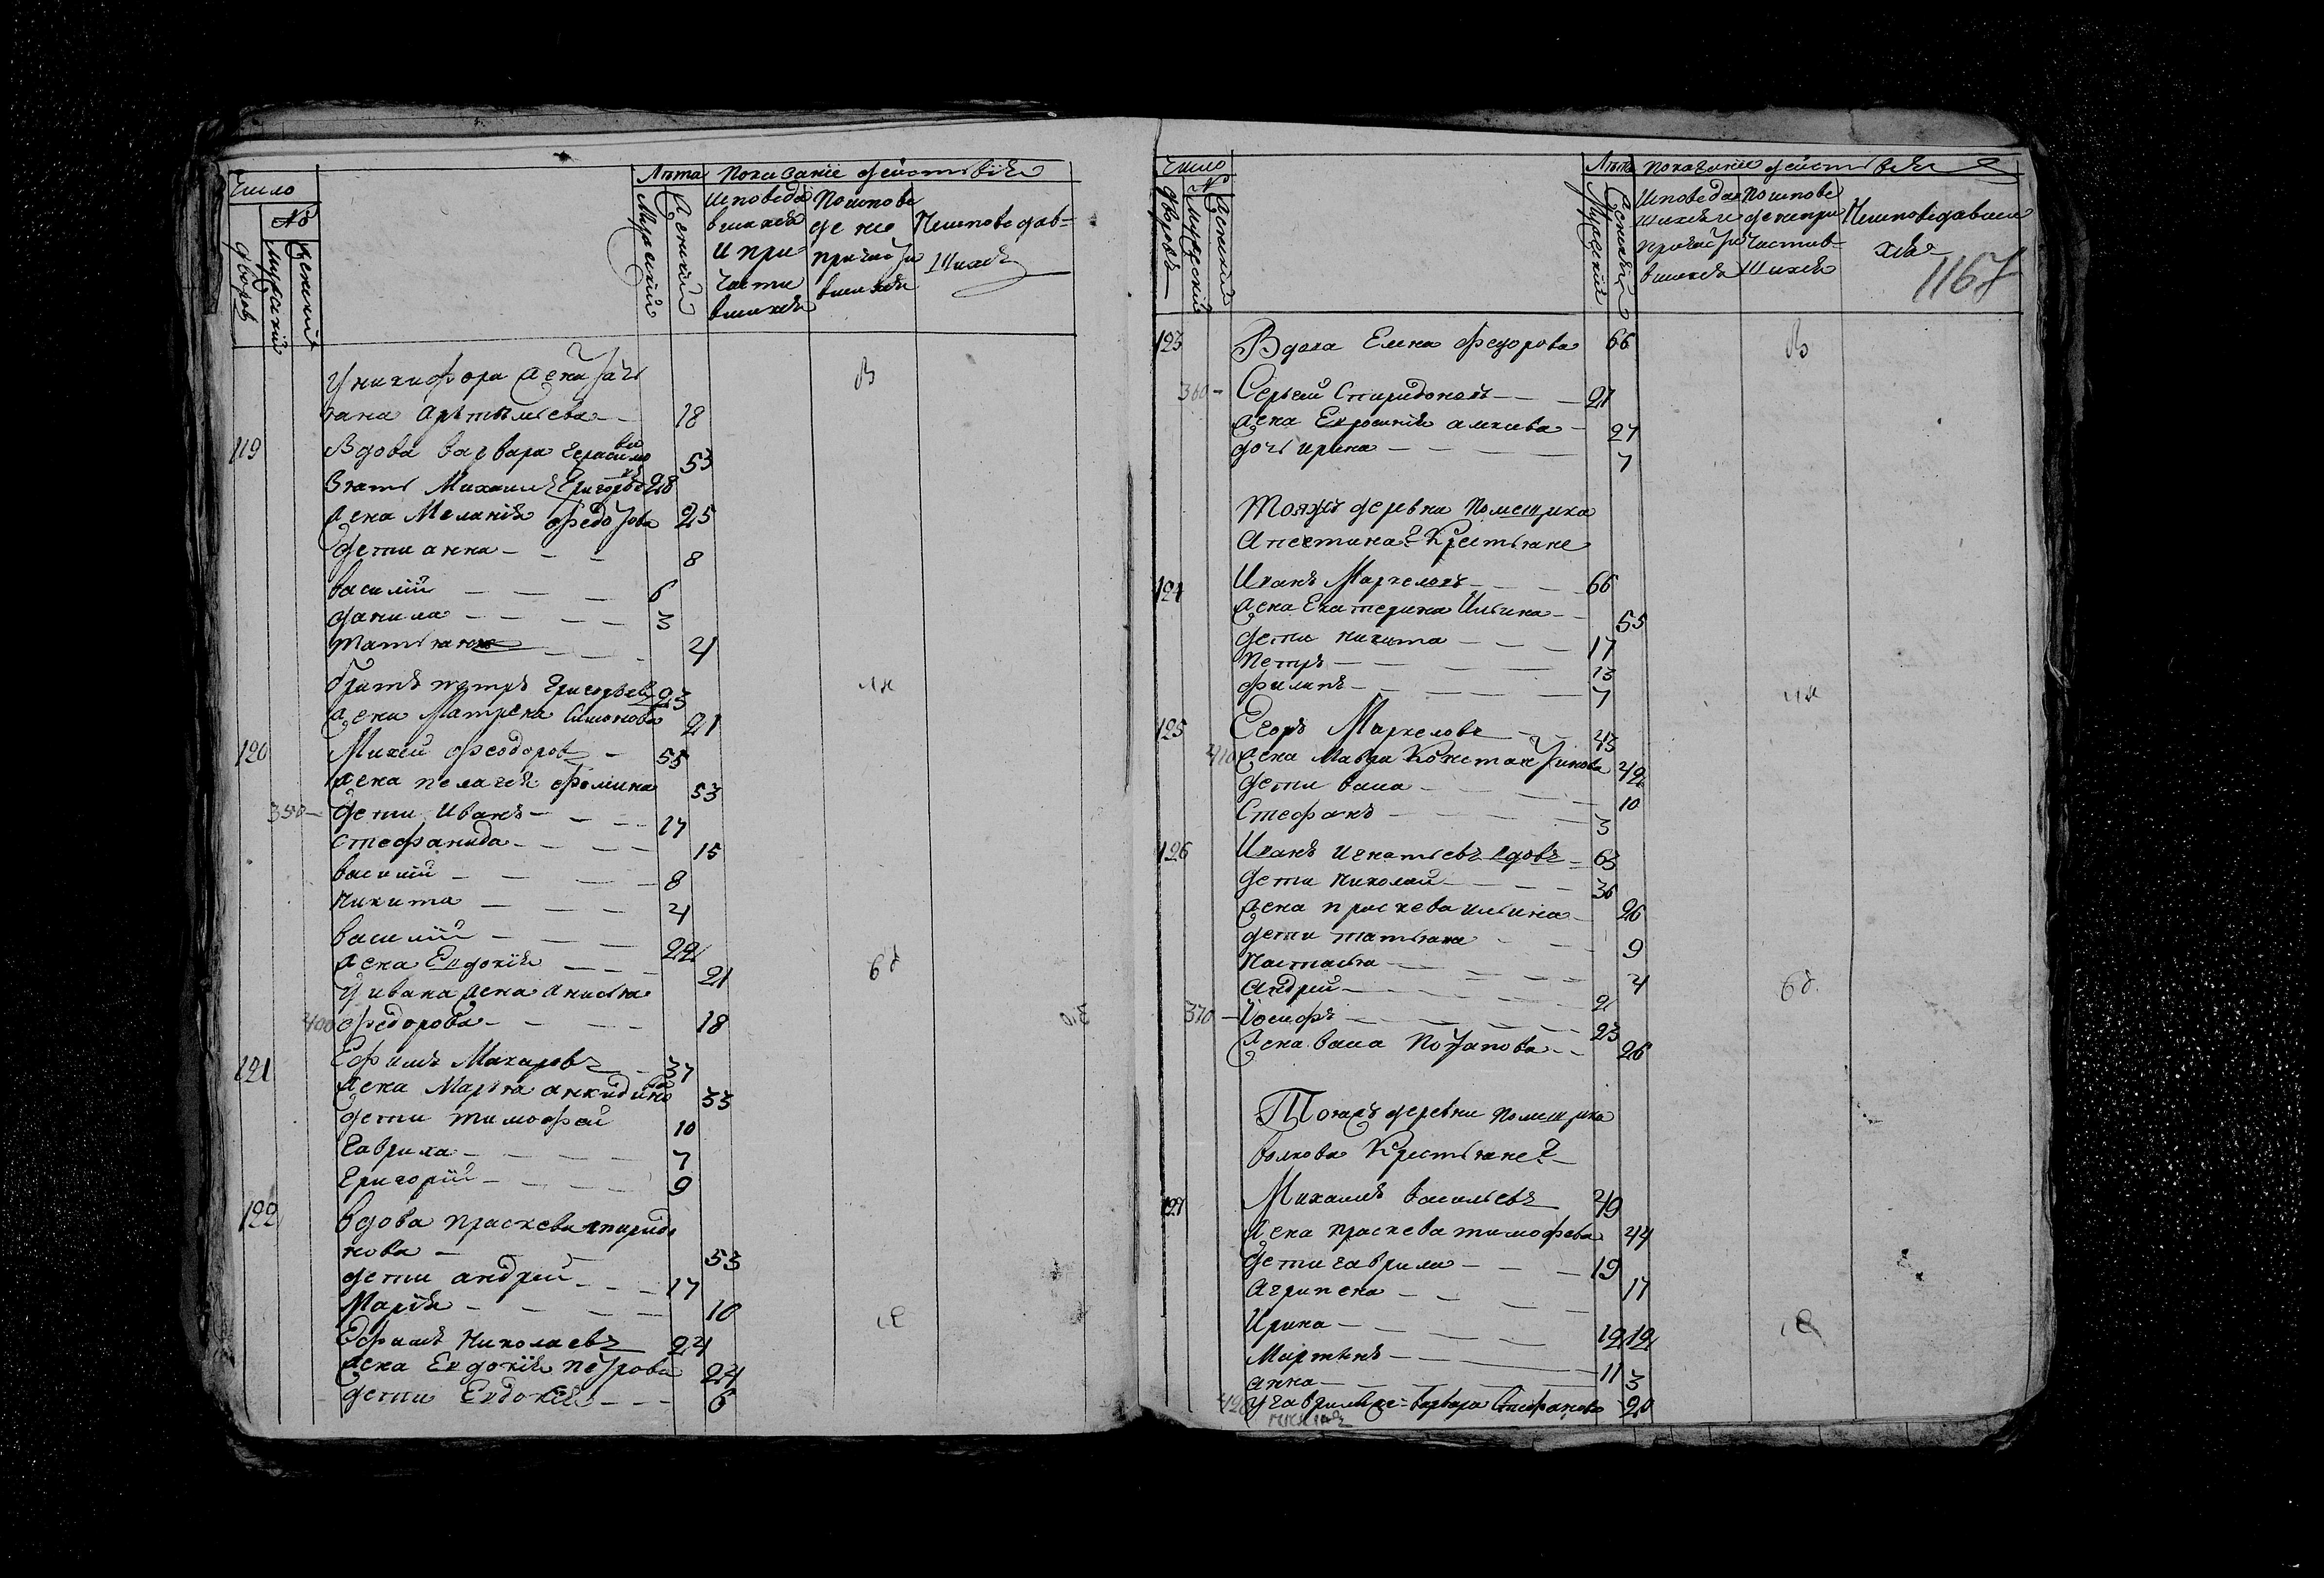 Число
№
дворовъ
мужескій
женскій
Лѣта
Мужескій
Женскій
Показаніе действія
исповеда
вшихся
и при
части
вшихся
По испове
де не
причасти
вшихся
Неисповедав-
шихся
У никифора жена Тать
яна Артемьева 18
119 Вдова Варвара Герасимо
ва 53
Зять Михаилъ Григорьевъ 28
жена Меланія Федотова 25
дети анна 8
василій 6
данила 3
татьяна 4
братъ петръ Григорьевъ 23
жена Матрена Симонова 21
120 Михей Феодоровъ 55
жена пелагея Фомина 53
350 дети Иванъ 17
стефанида 15
василий 8
никита 4
василій 22
жена Евдокія 21
У ивана жена анисья
400 Федорова 18
121 Ефимъ Макаровъ 37
жена Марья анкидина 33
дети тимофей 10
Гаврила 7
Григорій 9
122 вдова праскева спиридо
нова 53
дети андрей 17
Марія 10
Ефимъ Николаевъ 24
жена Евдокія петрова 24
дети Евдокія 6
Число
№
дворовъ
мужескій
женскій
Лѣта
Мужеский
Женскій
Показаніе действія
Исповедав
шихся и
причасти
вшихся
По испове
де непри
частив-
шихся
Неисповедавши
хся
1167
123 Вдова Елена Федорова 66
360 Сергей Спиридоновъ 27
жена Ефросинія 27
дочь ирина 7
Тояжъ деревни помещика
Апехтина Крестьяне
124 Иванъ Маркеловъ 66
жена Екатерина Ильина 55
дети никита 17
Петръ 13
филипъ 7
125 Егоръ Маркеловъ 43
410 жена Мавра Константинова 42
дети васа 10
Стефанъ 3
126 Иванъ игнатьевъ вдовъ 63
дети Николай 36
жена праскева ильина 26
дети татьяна 9
Настасья 4
андрей 2
370 Иосифъ 23
жена васа Потапова 26
Тояжъ деревни помещика
волкова Крестьяне
127 Михаилъ Васильевъ 49
жена праскева тимофева 44
дети гаврила 19
агрипена 17
Ирина 12 12
Мартинъ 11
анна 3
420 У гаврилы же-варвара Стефанова 20